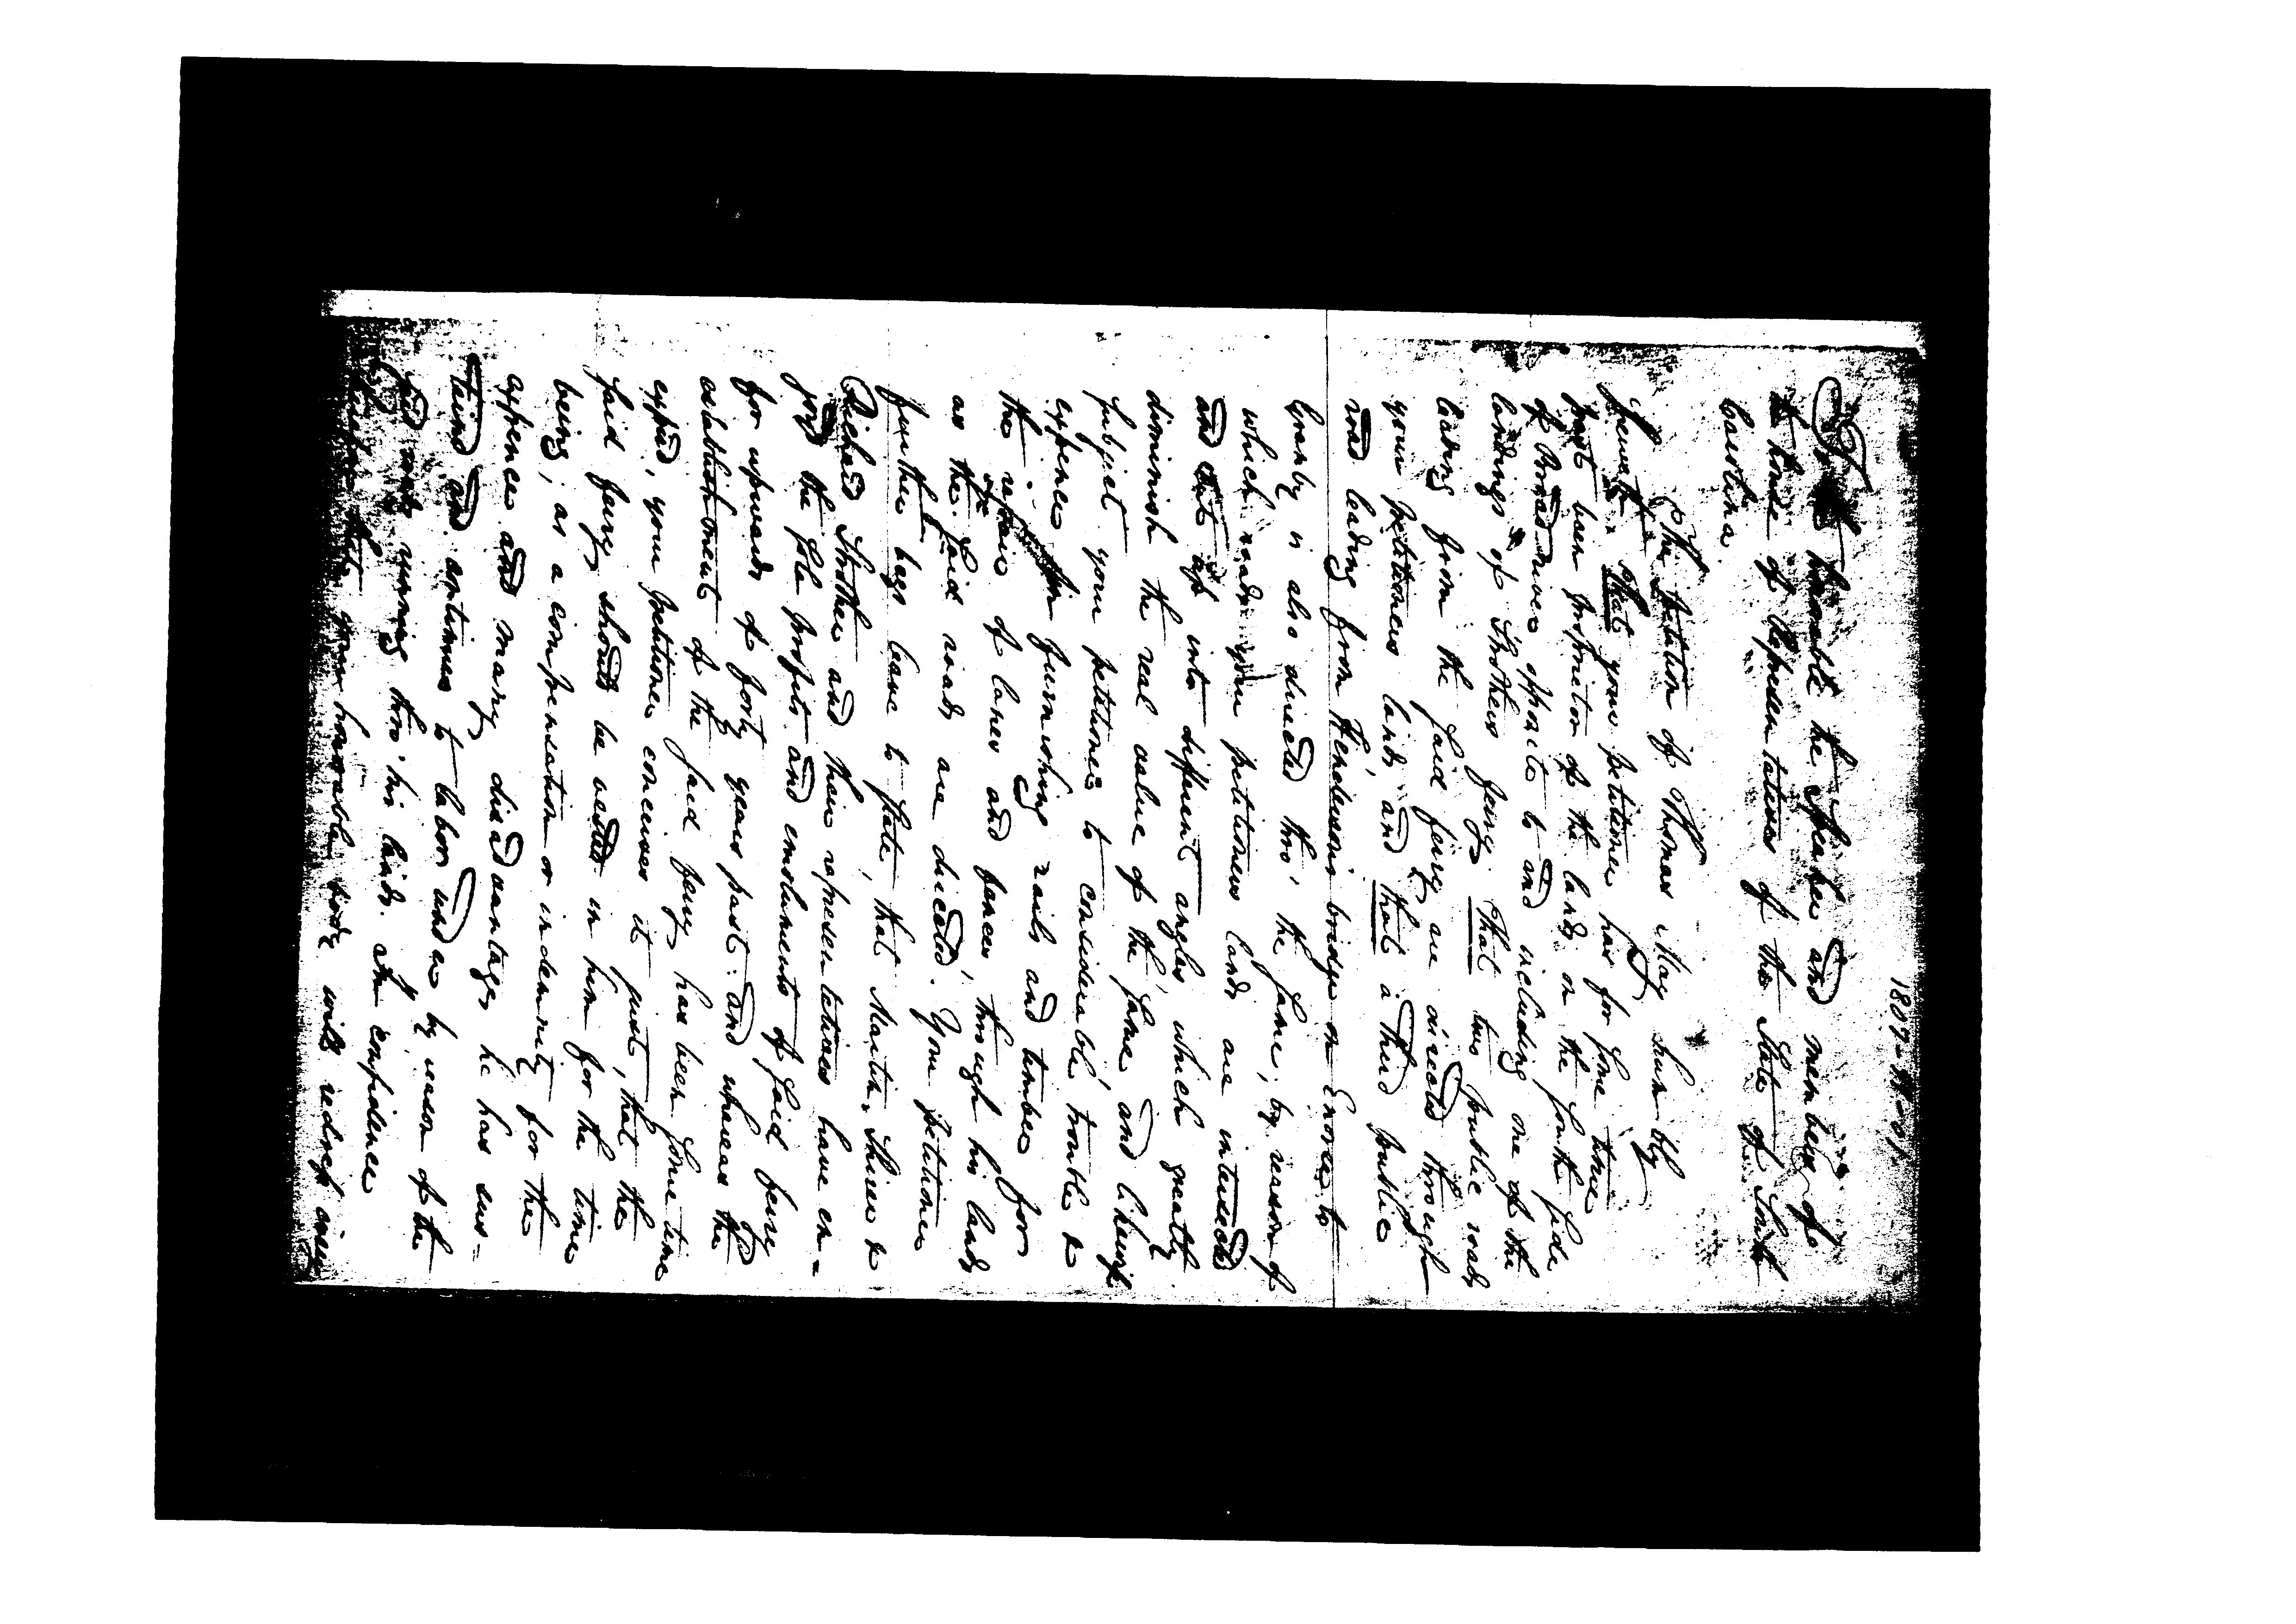 1809
To the honorable the Speaker and members of
the house of Representatives of the State of South
Carolina
The Petition of Thomas May humbly
sheweth That your petitioner has for some time
past been proprietor of the lands on the south side
of Broad river opposite to and including one of the
landings of Strothers ferry. That two public roads
leading from the said ferry are directed through
your petitioners lands and that a third public
road leading from Hendersons bridge on Enoree to
Granby is also directed thro' the same; by reason of
which roads your petitioners lands are intersected
and cut up into different angles, which greatly
diminish the real value of the same and likewise
subject your petitioner to considerable trouble &
expence for furnishing rails and timber for
the repair of lanes and fences, through his lands
as the said roads are directed. Your petitioner
further begs leave to state, that Martin, Shirer &
Richard Strother and their representatives have en-
joyd the sole profits and emoluments of said ferry
for upwards of forty years past. and whereas the
establishment of the said ferry has been some time
expired, your petitioner conceives it just, that the
said ferry should be vested in him for the time
being; as a compensation or indemnity for the
expence and many disadvantages he has sus-
taind and continues to labor under by reason of the
said roads running thro' his lands. In confidence
that your honorable body will redress every